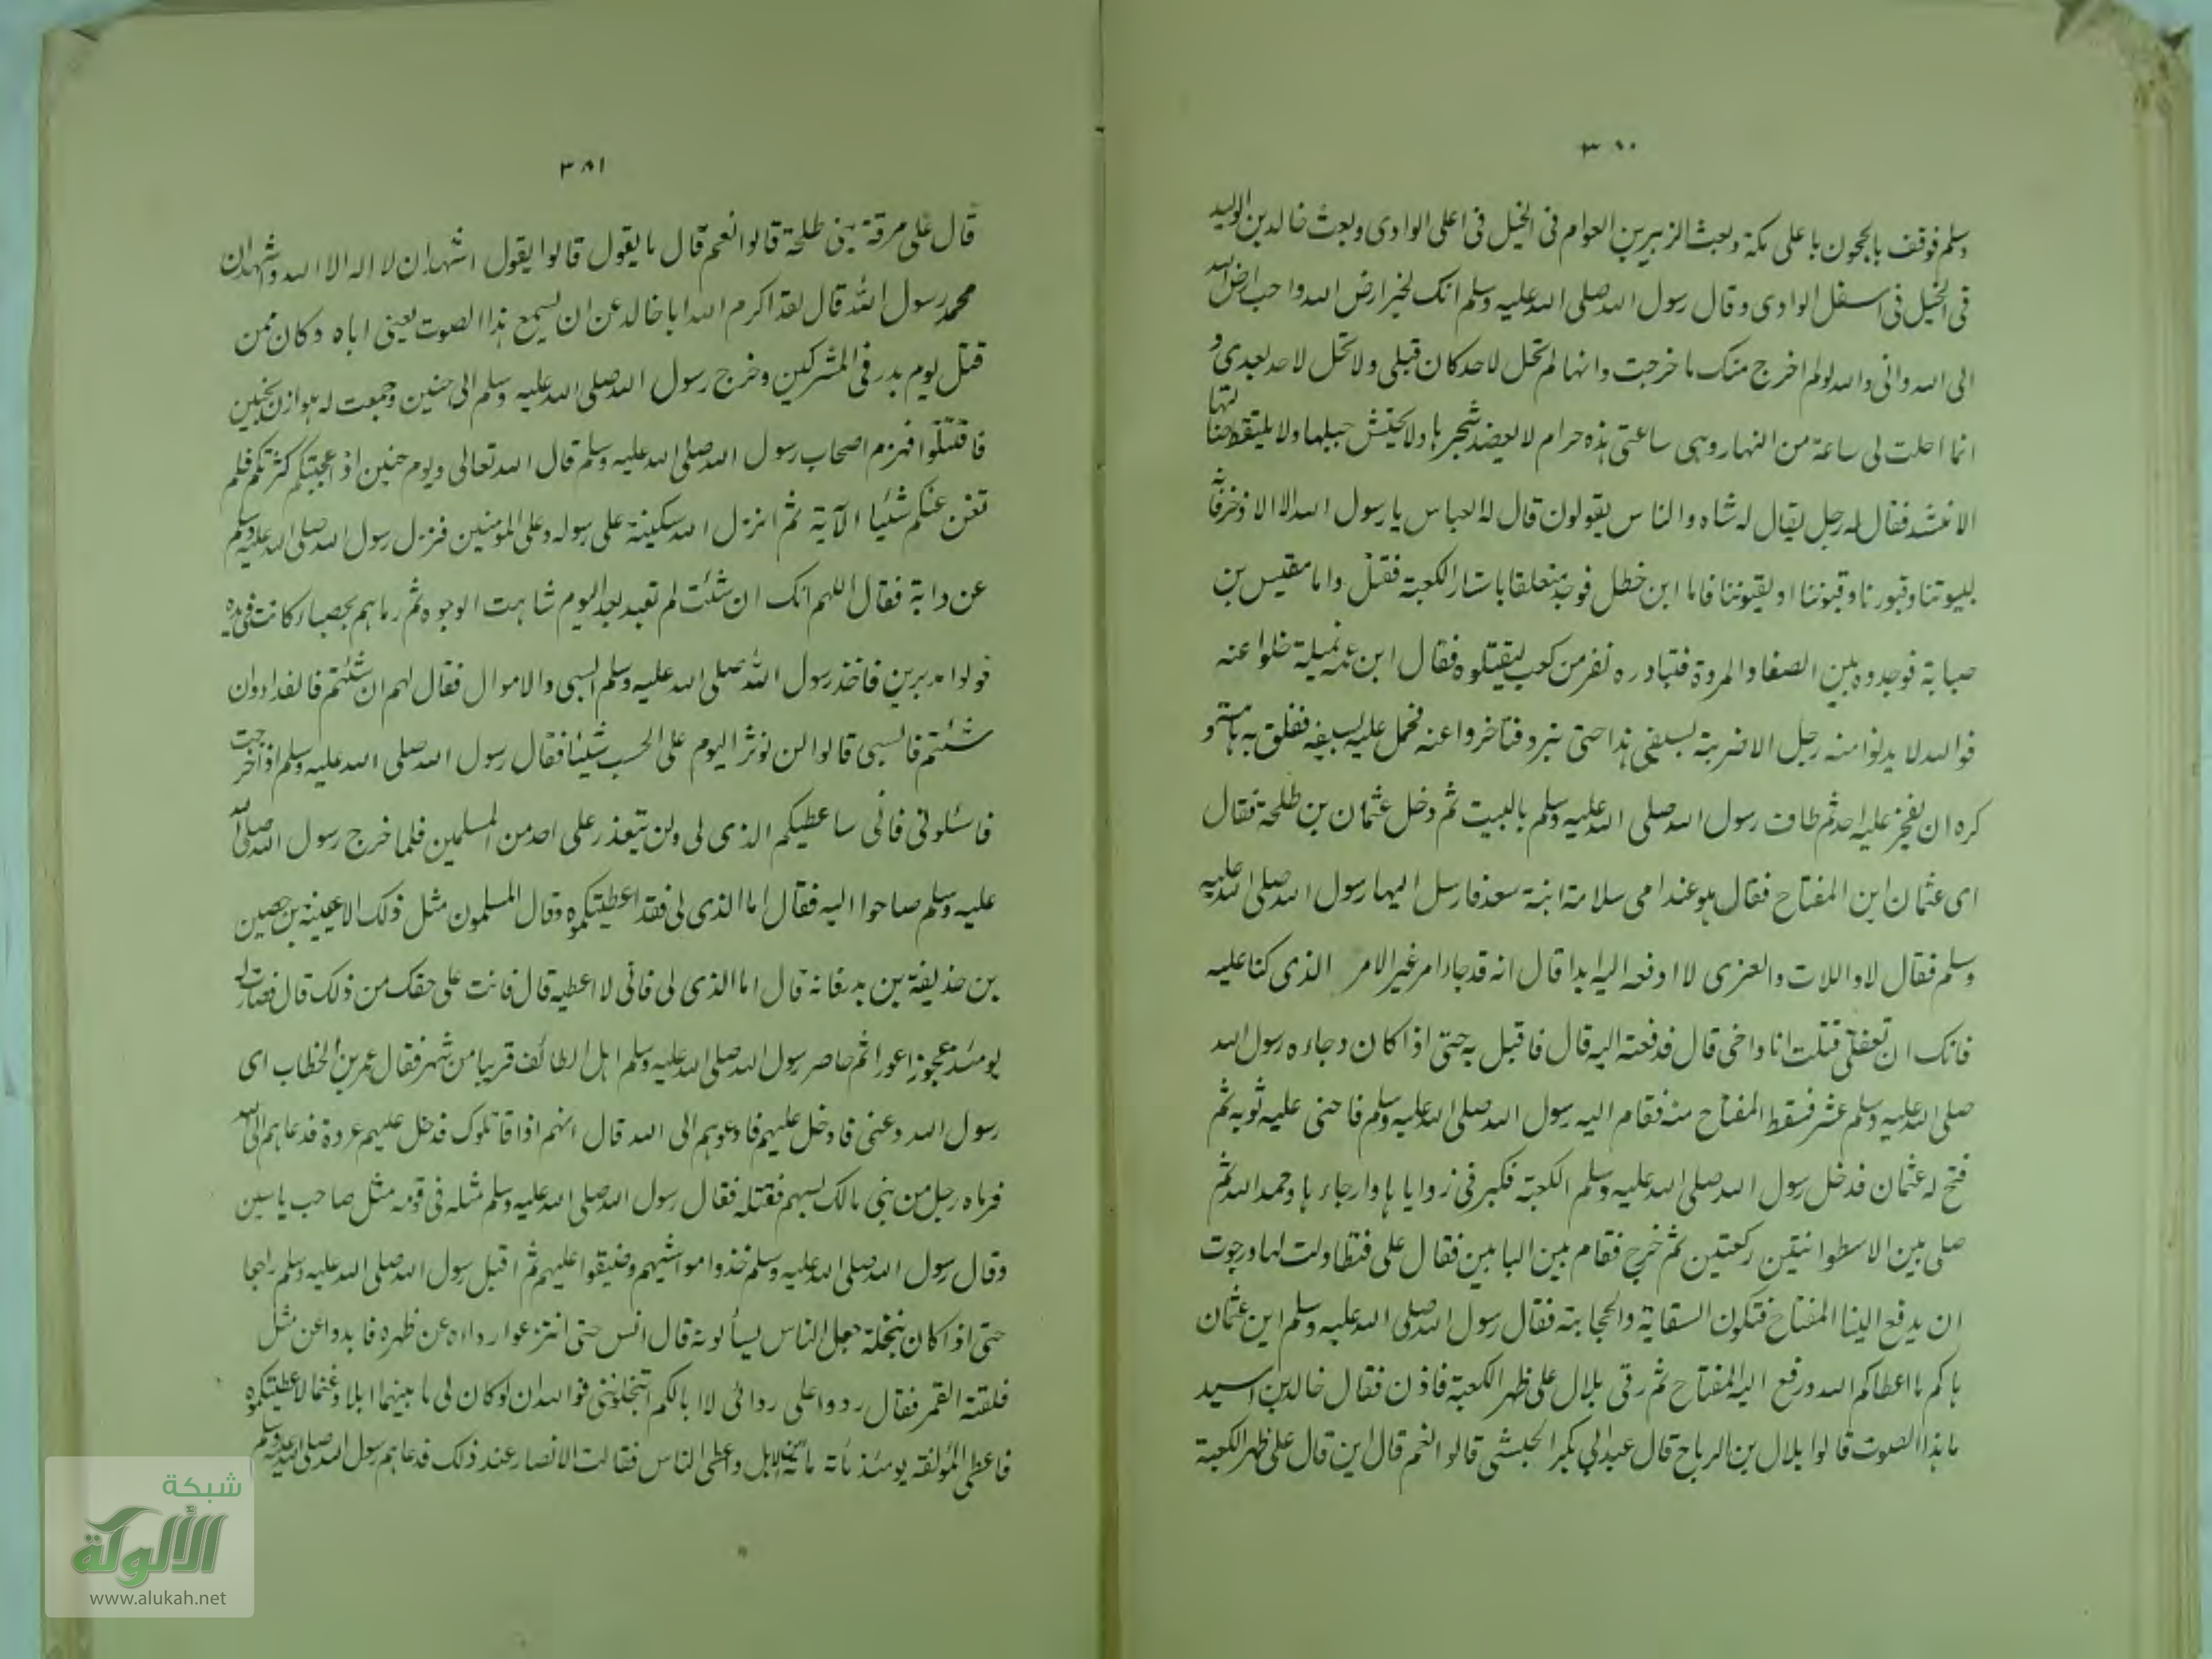 ٣٨٠
وسلم فوقف بالحجون باعلى مكة وبعث الزبير بن العوام فى الخيل فى اعلى الوادى وبعث خالد بن الوليد
فى الخيل فى اسفل الوادى وقال رسول الله صلى الله عليه وسلم انك لخير ارض الله واحب ارض الله
الى الله وانى والله لو لم اخرج منك ما خرجت وانها لم تحل لاحد كان قبلى ولا تحل لاحد بعدى و
انما احلت لى ساعة من النهار وهى ساعتى هذه حرام لا يعضد شجرها ولا يحتش حبلها ولا يلتقط ضالتها
الا منشد فقال له رجل يقال له شاه والناس يقولون قال له العباس يا رسول الله الا الاذخر فانه
لبيوتنا وقبورنا وقيوننا او لقيوننا فاما ابن خطل فوجد متعلقا باستار الكعبة فقتل واما مقيس بن
صبابة فوجدوه بين الصفا والمروة فتبادره نفر من كعب ليقتلوه فقال ابن عمه نميلة خلوا عنه
فوالله لا يدنوا منه رجل الا ضربته بسيفى هذا حتى يبرد فتأخروا عنه فحمل عليه بسيفه ففلق به هامته و
كره ان يفخر عليه احد ثم طاف رسول الله صلى الله عليه وسلم بالبيت ثم دخل عثمان بن طلحة فقال
اى عثمان اين المفتاح فقال هو عند امى سلامة ابنة سعد فارسل اليها رسول الله صلى الله عليه
وسلم فقال لا واللات والعزى لا ادفعه اليه ابدا قال انه قد جاء امر غير الامر الذى كنا عليه
فانك ان تفعلى قتلت انا واخى قال فدفعته اليه قال فاقبل به حتى اذا كان وجاءه رسول الله
صلى الله عليه وسلم عثر فسقط المفتاح منه فقام اليه رسول الله صلى الله عليه وسلم فاحنى عليه ثوبه ثم
فتح له عثمان فدخل رسول الله صلى الله عليه وسلم الكعبة فكبر فى زواياها وارجاءها وحمد الله ثم
صلى بين الاسطوانتين ركعتين ثم خرج فقام بين البابين فقال على فتطاولت لها ورجوت
ان يدفع الينا المفتاح فتكون السقاية والحجابة فقال رسول الله صلى الله عليه وسلم اين عثمان
هاكم ما اعطاكم الله ورفع اليه المفتاح ثم رقى بلال على ظهر الكعبة فاذن فقال خالد بن اسيد
ما هذا الصوت قالوا بلال بن الرباح قال عبد ابى بكر الحبشى قالوا نعم قال اين قال على ظهر الكعبة
٣٨١
قال على مرقة بنى طلحة قالوا نعم قال ما يقول قالوا يقول اشهد ان لا اله الا الله واشهد ان
محمد رسول الله قال لقد اكرم الله ابا خالد عن ان يسمع هذا الصوت يعنى اباه وكان ممن
قتل يوم بدر فى المشركين وخرج رسول الله صلى الله عليه وسلم الى حنين وجمعت له هوازن بحنين
فاقتتلوا فهزم اصحاب رسول الله صلى الله عليه وسلم قال الله تعالى ويوم حنين اذ اعجبتكم كثرتكم فلم
تغن عنكم شيئا الآية ثم انزل الله سكينة على رسوله وعلى المؤمنين فنزل رسول الله صلى الله عليه وسلم
عن دابة فقال اللهم انك ان شئت لم تعبد بعد اليوم شاهت الوجوه ثم رماهم بحصباء كانت فى يده
فولوا مدبرين فاخذ رسول الله صلى الله عليه وسلم السبى والاموال فقال لهم ان شئتم فالفداء وان
شئتم فالسبى قالوا لن نوثر اليوم على الحسب شيئا فقال رسول الله صلى الله عليه وسلم اذا خرجت
فاسئلونى فانى ساعطيكم الذى لى ولن يتعذر على احد من المسلمين فلما خرج رسول الله صلى الله
عليه وسلم صاحوا اليه فقال اما الذى لى فقد اعطيتكموه وقال المسلمون مثل ذلك الا عيينة بن حصين
بن حذيفة بن بدر فانه قال اما الذى لى فانى لا اعطيه قال فانت على حقك من ذلك قال فصارت له
يومئذ عجوز اعورا ثم حاصر رسول الله صلى الله عليه وسلم اهل الطائف قريبا من شهر فقال عمر بن الخطاب اى
رسول الله دعنى فادخل عليهم فادعوهم الى الله قال انهم اذا قاتلوك فدخل عليهم عروة فدعاهم الى الله
فرماه رجل من بنى مالك بسهم فقتله فقال رسول الله صلى الله عليه وسلم مثله فى قومه مثل صاحب ياسين
وقال رسول الله صلى الله عليه وسلم خذوا مواشيهم وضيقوا عليهم ثم اقبل رسول الله صلى الله عليه وسلم راجعا
حتى اذا كان بنخلة جعل الناس يسألونه قال انس حتى انتزعوا رداءه عن ظهره فابدوا عن مثل
فلقة القمر فقال ردوا على ردائى لا ابا لكم اتبخلوننى فوالله ان لو كان لى ما بينهما ابلا وغنما لاعطيتكموه
فاعطى المؤلفة يومئذ مأة مائة من الابل واعطى الناس فقالت الانصار عند ذلك فدعاهم رسول الله صلى الله عليه وسلم
شبكة
الألوكة
www.alukah.net